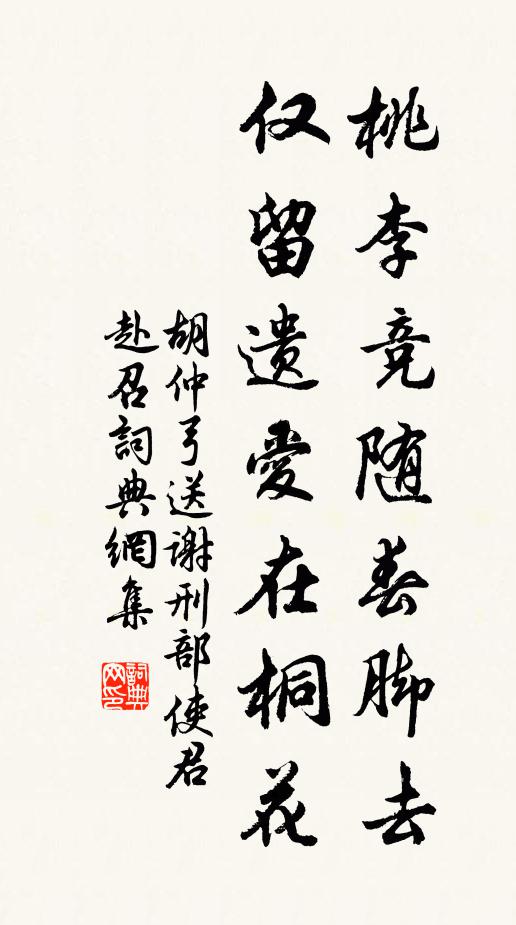 桃李竞随春脚去
仅留遗爱在桐花
胡仲弓送谢刑部使君
赴召詞典網集
詞典网印